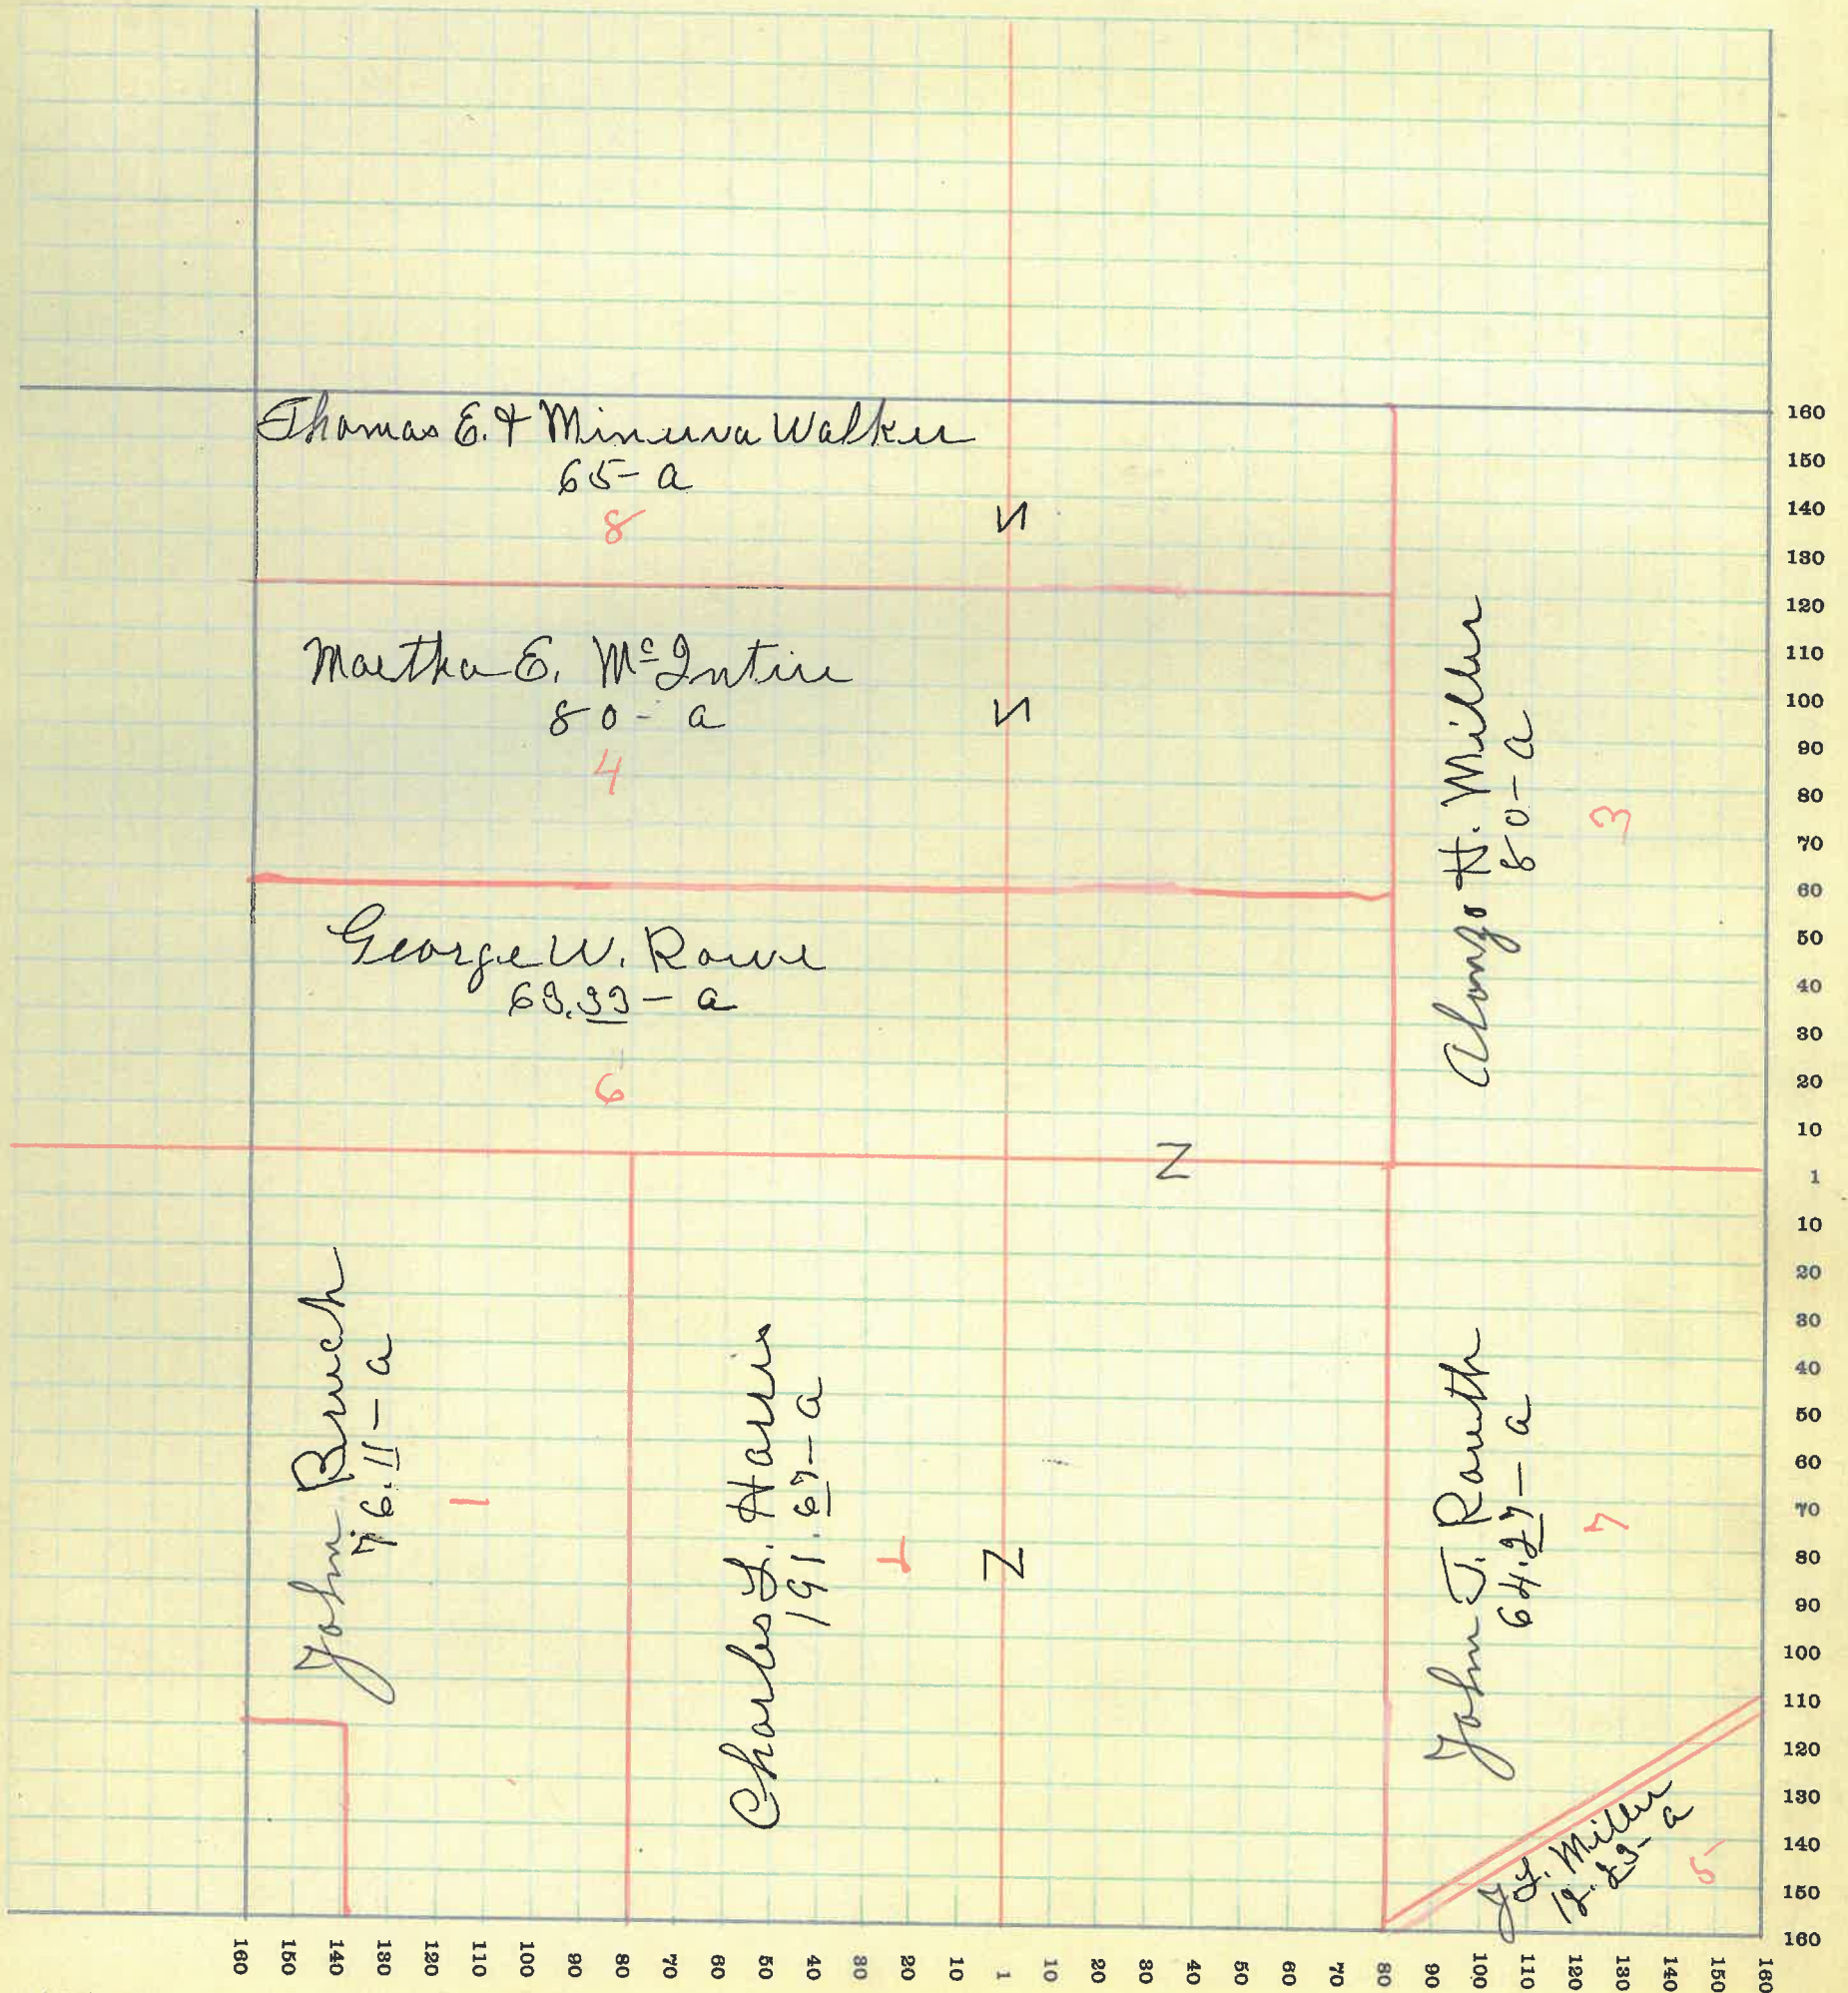 Thomas E. & Minerva Walker
65-a
8
Martha E. McIntire
80-a
4
George W. Rowe
63.33-a
6
Alonzo H. Miller
80-a
3
John Bruch
76.11-a
1
Charles L. Harris
191.67-a
2
John J. Rauth
64.27-a
7
J. L. Miller
12.23-a
5
Z
Z
Z
Z
160
150
140
130
120
110
100
90
80
70
60
50
40
30
20
10
1
10
20
30
40
50
60
70
80
90
100
110
120
130
140
150
160
160 150 140 130 120 110 100 90 80 70 60 50 40 30 20 10 1 10 20 30 40 50 60 70 80 90 100 110 120 130 140 150 160